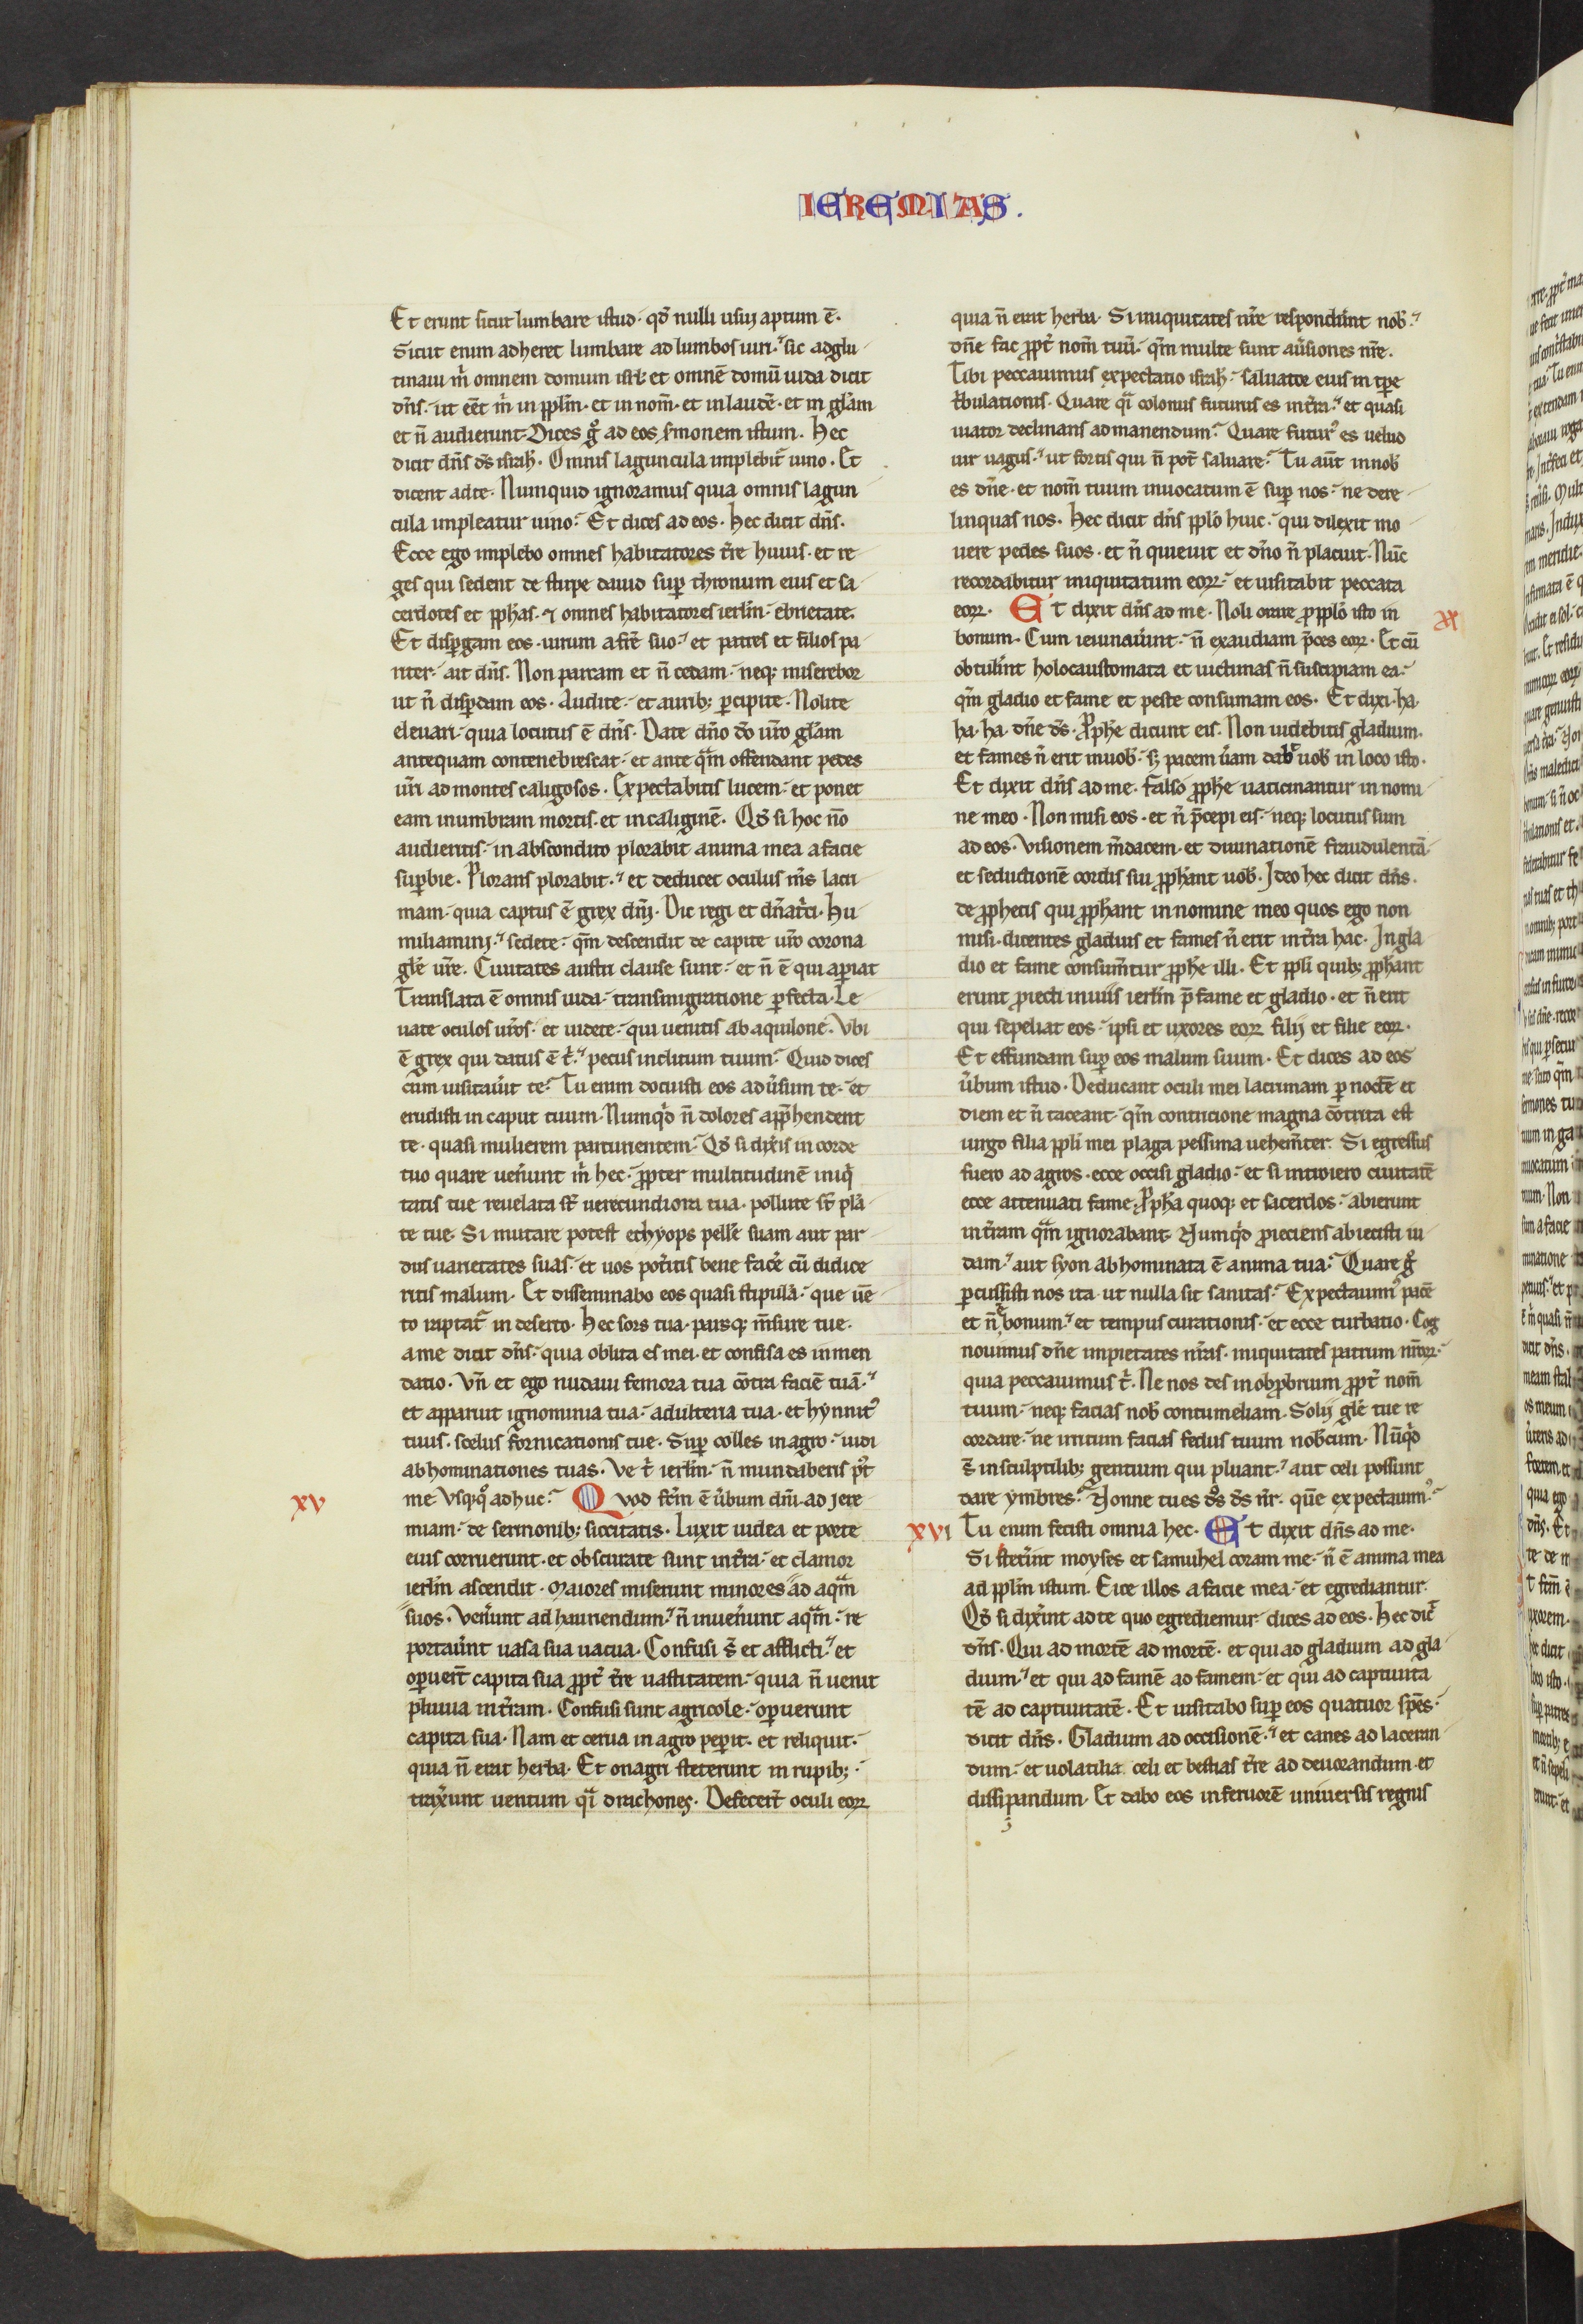 IEREMIAS.
Et erunt sicut lumbare istud· qđ nulli usui aptum ē·
Sicut enim adheret lumbare ad lumbos uiri· sic adglu
tinaui m̃ omnem domum isrl· et omnē domū iuda dicit
dñs· ut eēt m̃ in pplm̃· et in nom̃· et in laudē· et in glam̃
et ñ audierunt· Dices g̊ ad eos s̃monem istum. Hec
dicit dñs ds̃ isrl̃· Omnis laguncula implebit̃ uino. Et
dicent ad te· Numquid ignoramus quia omnis lagun
cula impleatur uino· Et dices ad eos· Hec dicit dñs·
Ecce ego implebo omnes habitatores t̃re huius· et re
ges qui sedent de stirpe dauid sup̱ thronum eius et sa
cerdotes et pphas· ⁊ omnes habitatores ierlm̃· ebrietate·
Et disp̱gam eos· uirum a fr̃e suo· et patres et filios pa
riter· ait dñs· Non parcam et ñ cedam· neq; miserebor
ut ñ disp̱dam eos· Audite· et aurib; p̱cipite· Nolite
eleuari· quia locutus ē dñs· Date dño dõ ur̃o glam̃
antequam contenebrescat· et ante qam̃ offendant pedes
ur̃i ad montes caligosos· Expectabitis lucem· et ponet
eam in umbram mortis· et in caliginē· Qđ si hoc nõ
audieritis· in abscondito plorabit anima mea a facie
sup̱bie· Plorans plorabit· et deducet oculus m̃s lacri
mam· quia captus ē grex dñi· Dic regi et dñatr̃ci· Hu
miliamini· sedete· qm̃ descendit de capite ur̃o corona
glẽ ur̃e· Ciuitates austri clause sunt· et ñ ē qui ap̱iat
Translata ē omnis iuda· transmigratione p̱fecta· Le
uate oculos ur̃os· et uidete· qui uenitis ab aquilone· Vbi
ē grex qui datus ē t̃· pecus inclitum tuum· Quid dices
cum uisitau̾it te· Tu enim docuisti eos adu̾sum te· et
erudisti in caput tuum· Numqd̃ ñ dolores app̃hendent
te· quasi mulierem parturientem· Qđ si dixis̾ in corde
tuo quare uen̾unt m̃ hec· pp̱ter multitudinē iniq̃
tatis tue reuelata st̃ uerecundiora tua· pollute st̃ plã
te tue· Si mutare potest ethyops pellē suam aut par
dus uarietates suas· et uos pot̾itis bene fac̾e cū didice
ritis malum· Et disseminabo eos quasi stipulā· que uē
to raptat̃ in deserto· Hec sors tua· parsq; m̃sure tue·
a me dicit dñs· quia oblita es mei· et confisa es in men
datio· Vñ et ego nudaui femora tua cōtra faciē tuā·
et apparuit ignominia tua· adulteria tua· et hynnit̾
tuus· scelus fornicationis tue· Sup̱ colles in agro· uidi
abhominationes tuas· Ve t̃ ierlm̃· ñ mundaberis p̾t
xv
me Vsq;q̊ adhuc· Quod fc̃m ē u̾bum dñi· ad Jere
miam· de sermonib; siccitatis· Luxit iudea et porte
eius corruerunt· et obscurate sunt in t̃ra· et clamor
ierlm̃ ascendit· Maiores miserunt minores ad aqam̃
suos· Ven̾unt ad hauriendum· ñ inuen̾unt aqam̃· re
portau̾nt uasa sua uacua· Confusi s̃t et afflicti· et
op̱uert̃ capita sua ppt̃ t̃re uastitatem· quia ñ uenit
pluuia in t̃ram· Confusi sunt agricole· op̱uerunt
capita sua· Nam et cerua in agro pep̱it· et reliquit·
quia ñ erat herba· Et onagri steterunt in rupib;·
trax̾unt uentum qi̾ drachones· Defecert̃ oculi eorꝝ
quia ñ erat herba· Si iniquitates nr̃e responder̃int nob̾·
dñe fac ppt̃ nom̃ tuū· qm̃ multe sunt au̾siones nr̃e·
Tibi peccauimus expectatio isrl̃· saluator eius in tp̱e
t̃bulationis· Quare qi̾ colonus futurus es in t̃ra· et quasi
uiator declinans ad manendum· Quare futur̾ es uelud
uir uagus· ut fortis qui ñ pot̃ saluare· Tu aūt in nob̾
es dñe· et nom̃ tuum inuocatum ē sup̱ nos· ne dere
linquas nos· Hec dicit dñs pplõ huic· qui dilexit mo
uere pedes suos· et ñ quieuit et dño ñ placuit· Nūc
recordabitur iniquitatum eorꝝ· et uisitabit peccata
eorꝝ· Et dixit dñs ad me· Noli orare p̱ pplõ isto in
bonum· Cum ieiunau̾int· ñ exaudiam p̃ces eorꝝ· Et cū
obtul̾int holocaustomata et uictimas ñ suscipiam ea·
qm̃ gladio et fame et peste consumam eos· Et dixi· ha·
ha· ha· dñe ds̃· Pphe dicunt eis· Non uidebitis gladium·
et fames ñ erit in uob̾· s; pacem u̾am dabit uob̾ in loco isto·
Et dixit dñs ad me· falso pphe uaticinantur in nomi
ne meo· Non misi eos· et ñ p̃cepi eis· neq; locutus sum
ad eos· Visionem m̃dacem· et diuinationē fraudulentā·
et seductionē cordis sui pphant uob̾· Jdeo hec dicit dñs·
de pphetis qui pphant in nomine meo quos ego non
misi· dicentes gladius et fames ñ erit in t̃ra hac· In gla
dio et fame consumñtur pphe illi· Et ppli quib; pphant
erunt proiecti in uiis ierlm̃ p̃ fame et gladio· et ñ erit
qui sepeliat eos· ipsi et uxores eorꝝ filij et filie eorꝝ·
Et effundam sup̱ eos malum suum· Et dices ad eos
u̾bum istud· Deducant oculi mei lacrimam p̱ noctē et
diem et ñ taceant· qm̃ contricione magna cōtrita est
uirgo filia ppli mei plaga pessima uehem̃ter· Si egressus
fuero ad agros· ecce occisi gladio· et si introiero ciuitatē
ecce attenuati fame· Ppha quoq; et sacerdos· abierunt
in t̃ram qam̃ ignorabant· Numqd̃ proiciens abiecisti iu
dam· aut syon abhominata ē anima tua· Quare g̊
p̱cussisti nos ita· ut nulla sit sanitas· Expectauim̾ pacē
et ñ ē bonum· et tempus curationis· et ecce turbatio· Cog
nouimus dñe impietates nr̃as· iniquitates patrum nr̃orꝝ·
quia peccauimus t̃· Ne nos des in obp̱brium ppt̃ nom̃
tuum· neq; facias nob̾ contumeliam· Solij glẽ tue re
cordare· ne irritum facias fedus tuum nob̾cum· Nūqd̃
s̃t in sculptilib; gentium qui pluant· aut celi possunt
dare ymbres· Nonne tu es dñs ds̃ nr̃· quē expectauim̾·
xvi
Tu enim fecisti omnia hec· Et dixit dñs ad me·
Si stet̾int moyses et samuhel coram me· ñ ē anima mea
ad pplm̃ istum· Eice illos a facie mea· et egrediantur·
Qđ si dix̾int ad te quo egrediemur· dices ad eos· Hec dic̃
dñs· Qui ad mortē ad mortē· et qui ad gladium ad gla
dium· et qui ad famē ad famem· et qui ad captiuita
tē ad captiuitatē· Et uisitabo sup̱ eos quatuor sp̃es·
dicit dñs· Gladium ad occisionē· et canes ad laceran
dum· et uolatilia celi et bestias t̃re ad deuorandum et
dissipandum· Et dabo eos in feruorē uniuersis regnis